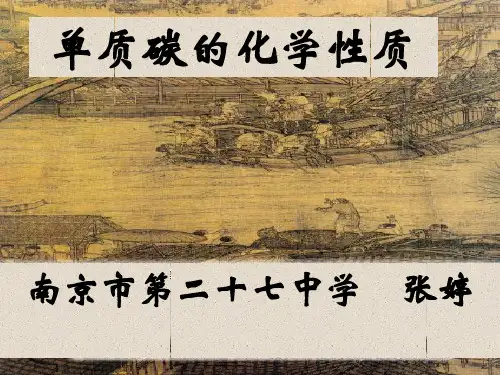 单质碳的化学性质
南京市第二十七中学 张婷